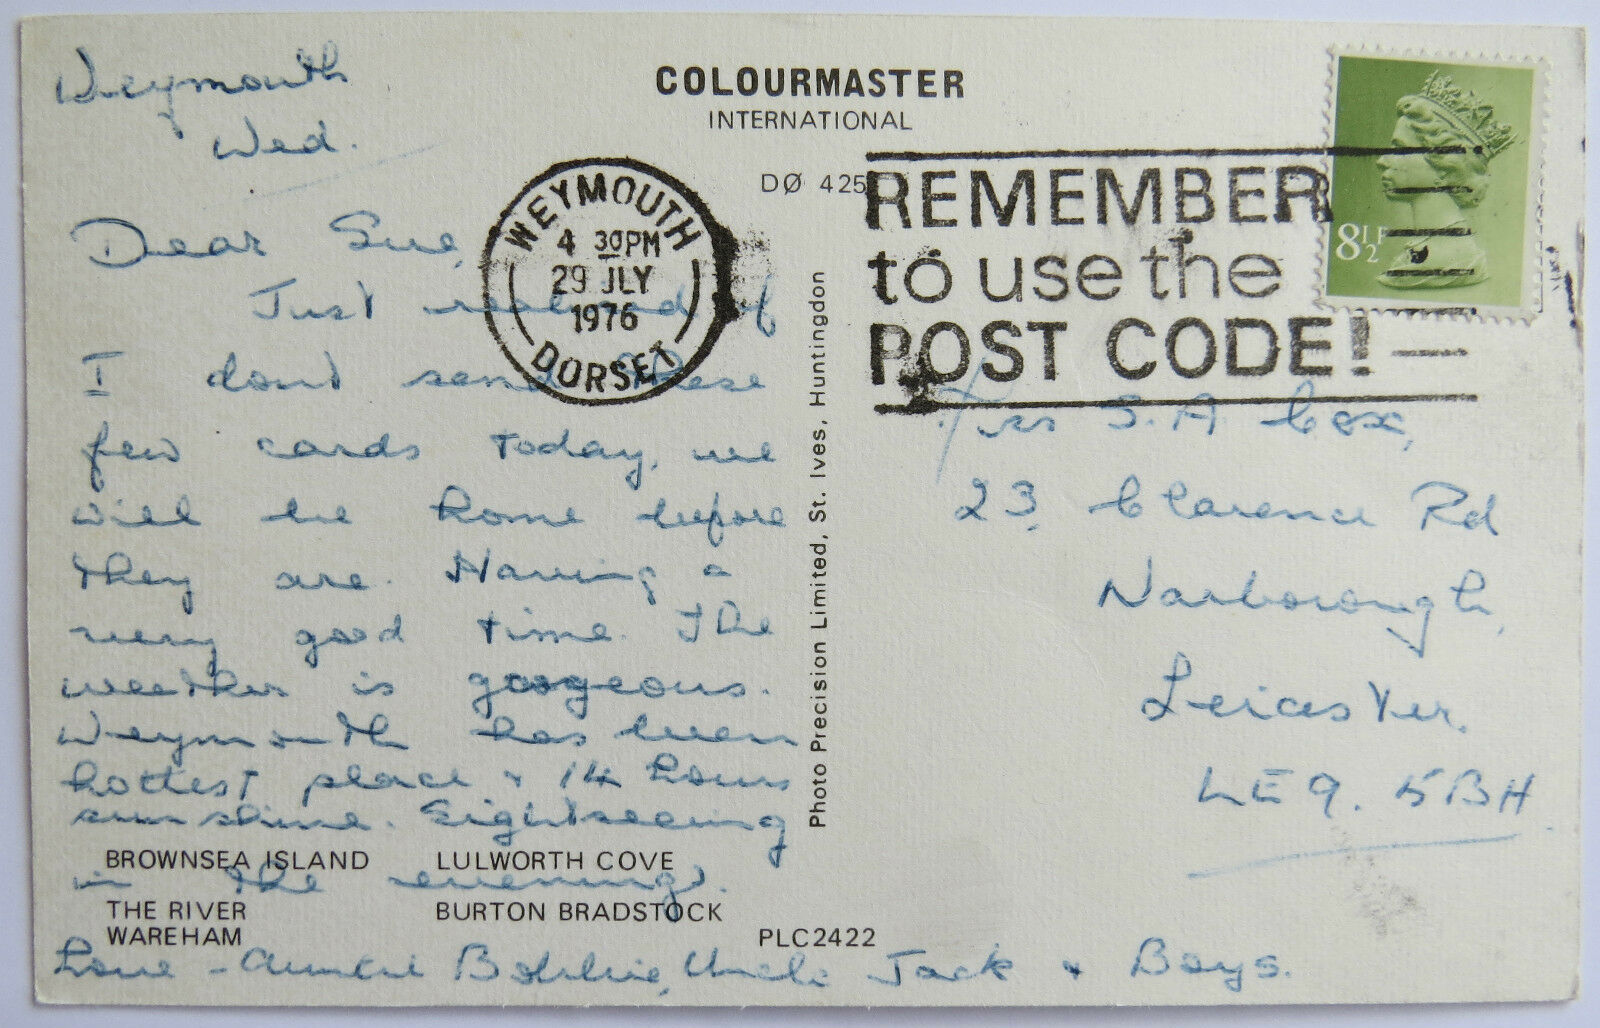 Weymouth
Wed.
Dear Sue,
Just realised if
I dont send these
few cards today, we
will be home before
they are. Having a
very good time. The
weather is gorgeous.
Weymouth has been
hottest place & 14 hours
sunshine. Sightseeing
in the evenings.
Love - Auntie Bobbie, Uncle Jack & Boys.
COLOURMASTER
INTERNATIONAL
DØ 425
WEYMOUTH
4 30PM
29 JLY
1976
DORSET
REMEMBER
to use the
POST CODE!
8½P
Photo Precision Limited, St. Ives, Huntingdon
Mrs S.A Cox,
23, Clarence Rd
Narborough,
Leicester.
LE9. 5BH
BROWNSEA ISLAND LULWORTH COVE
THE RIVER
WAREHAM
BURTON BRADSTOCK
PLC2422